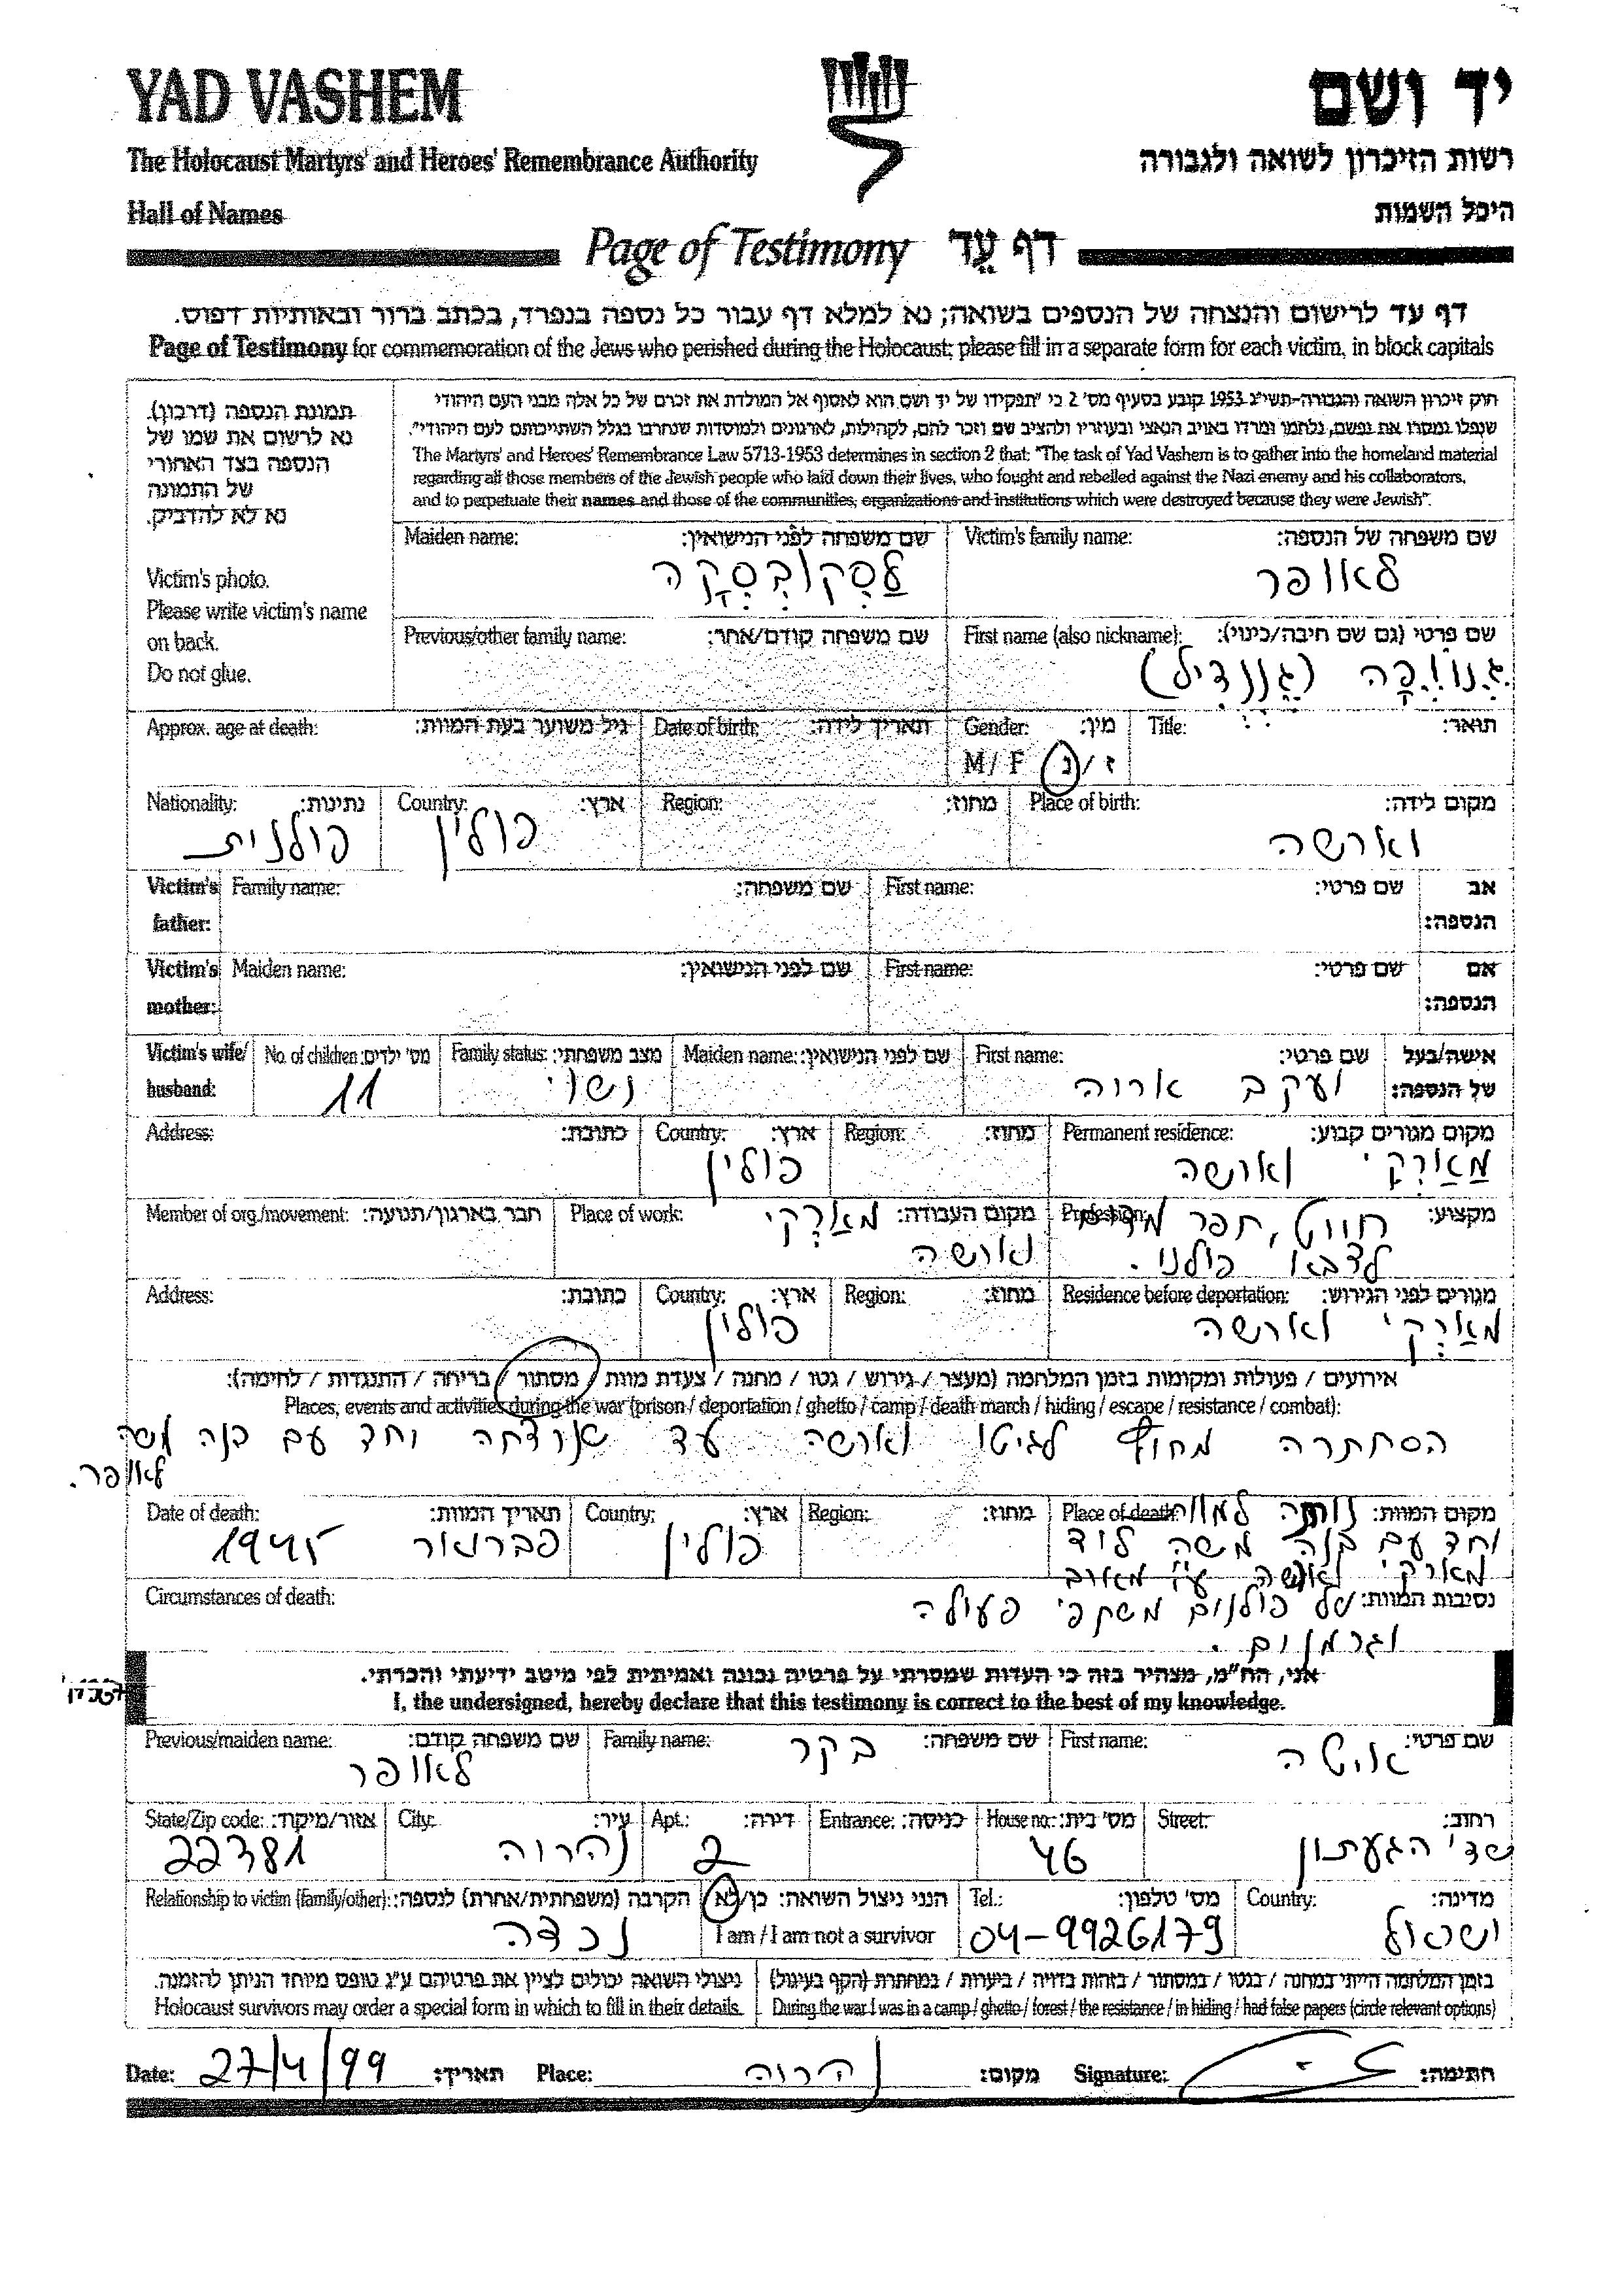 YAD VASHEM
יד ושם
The Holocaust Martyrs' and Heroes' Remembrance Authority
רשות הזיכרון לשואה ולגבורה
Hall of Names
היכל השמות
Page of Testimony דף עֵד
דף עד לרישום והנצחה של הנספים בשואה; נא למלא דף עבור כל נספה בנפרד, בכתב ברור ובאותיות דפוס.
Page of Testimony for commemoration of the Jews who perished during the Holocaust; please fill in a separate form for each victim, in block capitals
תמונת הנספה (דרכון).
נא לרשום את שמו של
הנספה בצד האחורי
של התמונה
נא לא להדביק.
Victim's photo.
Please write victim's name
on back.
Do not glue.
חוק זיכרון השואה והגבורה-תשי"ג 1953 קובע בסעיף מס' 2 כי "תפקידו של יד ושם הוא לאסוף אל המולדת את זכרם של כל אלה מבני העם היהודי
שנפלו ומסרו את נפשם, נלחמו ומרדו באויב הנאצי ובעוזריו ולהציב שם וזכר להם, לקהילות, לארגונים ולמוסדות שנחרבו בגלל השתייכותם לעם היהודי".
The Martyrs' and Heroes' Remembrance Law 5713-1953 determines in section 2 that: "The task of Yad Vashem is to gather into the homeland material
regarding all those members of the Jewish people who laid down their lives, who fought and rebelled against the Nazi enemy and his collaborators,
and to perpetuate their names and those of the communities, organizations and institutions which were destroyed because they were Jewish".
Victim's family name: שם משפחה של הנספה:
לאופר
Maiden name: שם משפחה לפני הנישואין:
לַסְקוֹבְסְקָה
First name (also nickname): שם פרטי (גם שם חיבה/כינוי):
Previous/other family name: שם משפחה קודם/אחר:
Title: תואר:
Gender: מין:
M / F ז / נ
Date of birth: תאריך לידה:
Approx. age at death: גיל משוער בעת המוות:
Place of birth: מקום לידה:
וארשה
Region: מחוז:
Country: ארץ:
פולין
Nationality: נתינות:
פולנית
Victim's father: Family name: שם משפחה: First name: שם פרטי: אב הנספה:
Victim's mother: Maiden name: שם לפני הנישואין: First name: שם פרטי: אם הנספה:
Victim's wife/ husband: אישה/בעל של הנספה:
First name: שם פרטי:
יעקב אריה
Maiden name: שם לפני הנישואין:
Family status: מצב משפחתי:
נשוי
No. of children: מס' ילדים:
11
Permanent residence: מקום מגורים קבוע:
מַארְקִי וארשה
Region: מחוז:
Country: ארץ:
פולין
Address: כתובת:
Profession: מקצוע:
חייט, תפר מדים
לצבא פולני.
Place of work: מקום העבודה:
מַארְקִי
וארשה
Member of org./movement: חבר בארגון/תנועה:
Residence before deportation: מגורים לפני הגירוש:
מַארְקִי וארשה
Region: מחוז:
Country: ארץ:
פולין
Address: כתובת:
אירועים / פעולות ומקומות בזמן המלחמה (מעצר / גירוש / גטו / מחנה / צעדת מוות / מסתור / בריחה / התנגדות / לחימה):
Places, events and activities during the war (prison / deportation / ghetto / camp / death march / hiding / escape / resistance / combat):
הסתתרה מחוץ לגיטו וארשה עד שנרצחה יחד עם בנה משה
לאופר.
Place of death: מקום המוות: נורתה למוות
יחד עם בנה משה ליד
מארקי וארשה ע"י מארב
Region: מחוז:
Country: ארץ:
פולין
Date of death: תאריך המוות:
פברואר 1945
Circumstances of death: נסיבות המוות:
של פולנים משתפי פעולה
וגרמנים.
אני, הח"מ, מצהיר בזה כי העדות שמסרתי על פרטיה נכונה ואמיתית לפי מיטב ידיעתי והכרתי.
I, the undersigned, hereby declare that this testimony is correct to the best of my knowledge.
First name: שם פרטי:
Family name: שם משפחה:
בקר
Previous/maiden name: שם משפחה קודם:
לאופר
Street: רחוב:
שד' הגעתון
House no.: מס' בית:
46
Entrance: כניסה:
Apt.: דירה:
2
City: עיר:
נהריה
State/Zip code: אזור/מיקוד:
22381
Country: מדינה:
ישראל
Tel.: מס' טלפון:
04-9926179
הנני ניצול השואה: כן/לא
I am / I am not a survivor
Relationship to victim (family/other): הקרבה (משפחתית/אחרת) לנספה:
נכדה
בזמן המלחמה הייתי במחנה / בגטו / במסתור / בזהות בדויה / ביערות / במחתרת (הקף בעיגול)
During the war I was in a camp / ghetto / forest / the resistance / in hiding / had false papers (circle relevant options)
ניצולי השואה יכולים לציין את פרטיהם ע"ג טופס מיוחד הניתן להזמנה.
Holocaust survivors may order a special form in which to fill in their details.
Date: 27/4/99 תאריך: Place: נהריה מקום: Signature: חתימה: